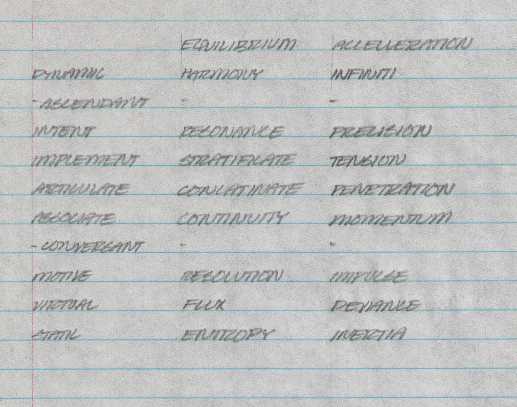 EQUILIBRIUM ACCELLERATION
DYNAMIC HARMONY INFINITI
- ASCENDANT - -
INTENT RESONANCE PRECISION
IMPLEMENT STRATIFICATE TENSION
ARTICULATE CONCATINATE PENETRATION
ASSOCIATE CONTINUITY MOMENTUM
- CONVERSANT - -
MOTIVE RESOLUTION IMPULSE
VIRTUAL FLUX DEVIANCE
STATIC ENTROPY INERTIA